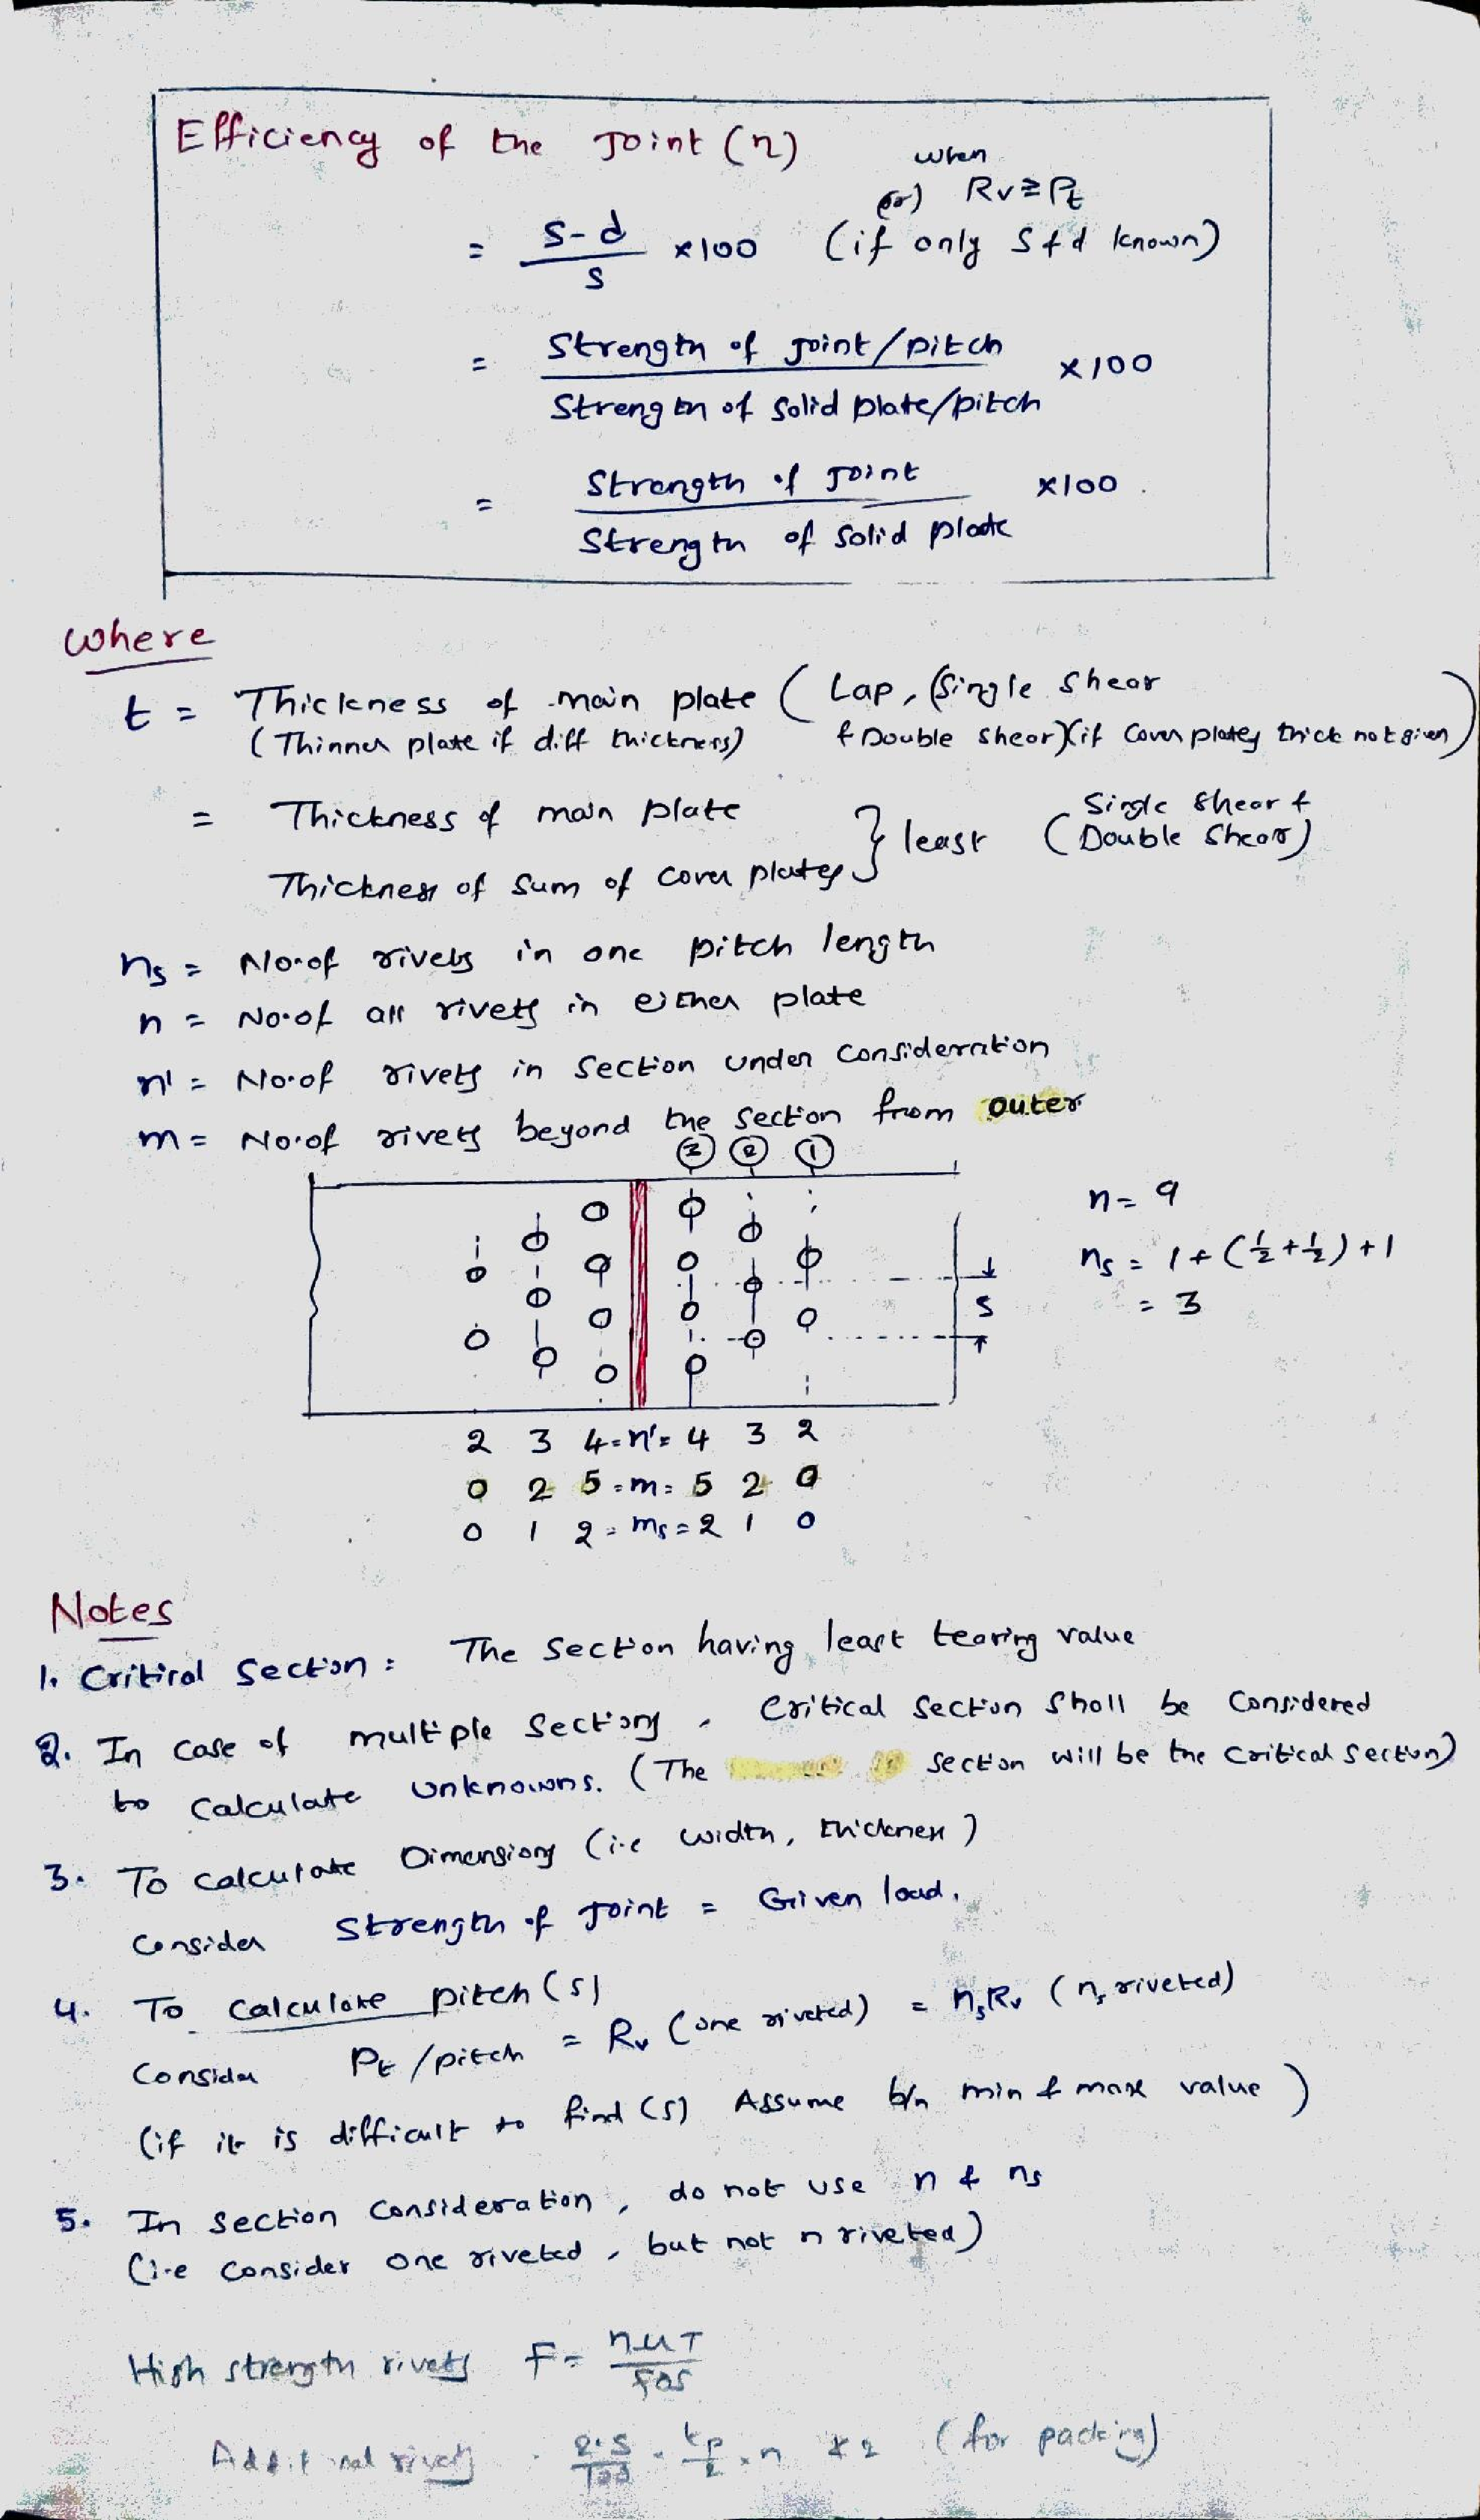 Efficiency of the Joint (η)
when
(or) Rv ≥ Pt
= S-d / S ×100 (if only S & d known)
= Strength of joint/pitch / Strength of solid plate/pitch ×100
= Strength of Joint / Strength of Solid plate ×100.
Where
t = Thickness of main plate ( Lap, (Single Shear
(Thinner plate if diff thickness) & Double shear)(if Cover plates thick not given)
= Thickness of main plate } least (Single Shear &
Thickness of sum of cover plates Double Shear)
ns = No.of rivets in one pitch length
n = No.of all rivets in either plate
n' = No.of rivets in Section under consideration
m = No.of rivets beyond the section from outer
③ ② ①
n = 9
ns = 1+(½+½)+1
S
= 3
2 3 4=n'= 4 3 2
0 2 5=m= 5 2 0
0 1 2=ms=2 1 0
Notes
1. Critical Section: The Section having least tearing value
2. In case of multiple Sections, critical section shall be Considered
to calculate unknowns. (The section will be the critical section)
3. To calculate Dimensions (i.e width, thickness)
Consider Strength of Joint = Given load.
4. To calculate pitch (s)
Consider Pt /pitch = Rv (one riveted) = nsRv (ns riveted)
(if it is difficult to find (s) Assume b/n min & max value)
5. In section consideration, do not use n & ns
(i.e consider one riveted, but not n riveted)
High strength rivets F = nuT / FOS
Additional rivets tp / 2 × n × 2 (for packing)